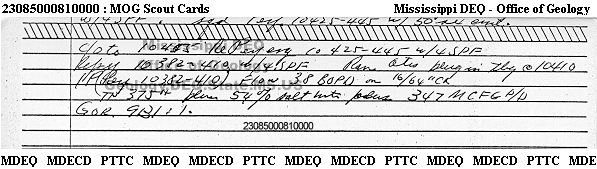 23085000810000 : MOG Scout Cards Mississippi DEQ - Office of Geology
w/4SPF. sqd Perf 10425-445 w/ 50
c/o to 10455 RePerf 10425-445 w/4SPF
Mississippi DEQ
10382-410 w/4SPF Ran otis plug in tbg @ 10410
(10382-410) Flow 38 BOPD on 16/64" CK
Geology.DEQ.State.MS.US
TP 375# plus 54% salt wtr plus 347 MCFGPD
GOR 9131:1.
23085000810000
MDEQ MDECD PTTC MDEQ MDECD PTTC MDEQ MDECD PTTC MDEQ MDECD PTTC MDEQ